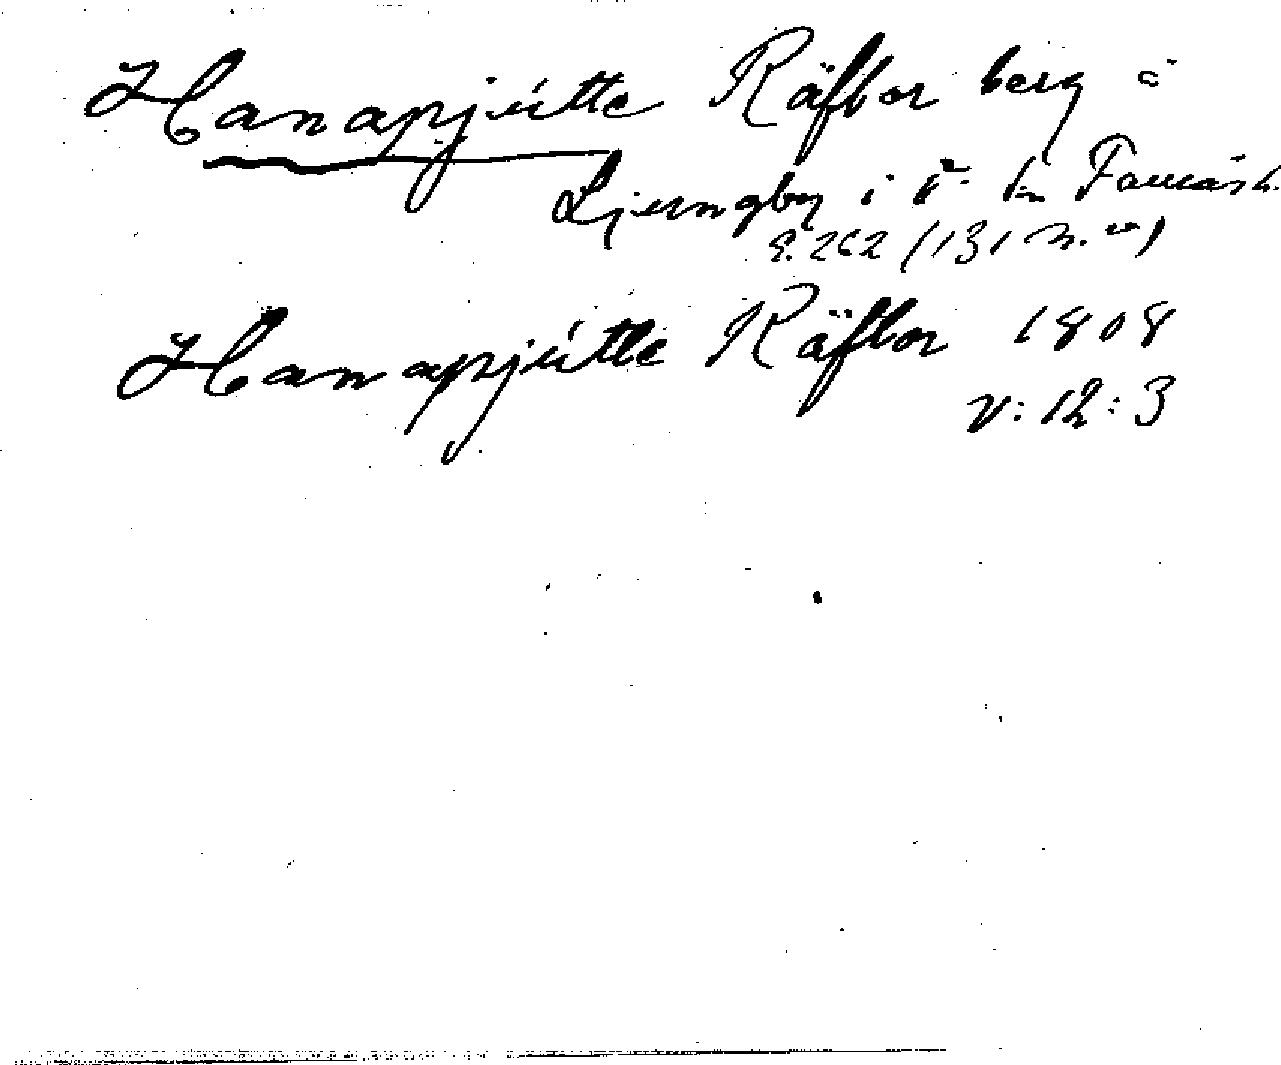 Hanapjutte Räfbor berg i
Ljungby i
S. 262 (131 n. v)
Hanapjutte Räfbor 1808
v: 12: 3